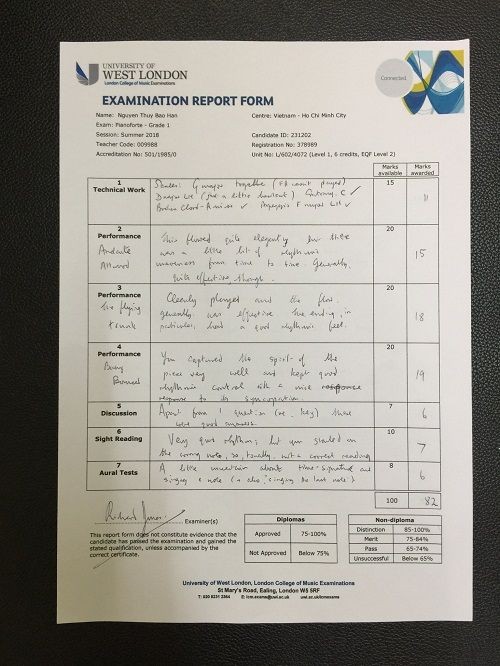 UNIVERSITY OF
WEST LONDON
London College of Music Examinations
Connected.
EXAMINATION REPORT FORM
Name: Nguyen Thuy Bao Han
Centre: Vietnam - Ho Chi Minh City
Exam: Pianoforte - Grade 1
Session: Summer 2018
Candidate ID: 231202
Teacher Code: 009988
Registration No: 378989
Accreditation No: 501/1985/0
Unit No: L/602/4072 (Level 1, 6 credits, EQF Level 2)
Marks available
Marks awarded
1
Technical Work
Scales: G major together
D major LH (just a little hesitant) Contrary C ✓
Broken Chord - A minor ✓ Arpeggio F major LH ✓
15
11
2
Performance
Andante
Attwood
This flowed quite elegantly but there
was a little bit of rhythmic
unevenness from time to time. Generally
quite effective, though.
20
15
3
Performance
The flying
trunk
Cleanly played and the flow
generally was effective. The ending, in
particular, had a good rhythmic feel.
20
18
4
Performance
You captured the spirit of the
piece very well and kept good
rhythmic control with a nice
response to its syncopation.
20
19
5
Discussion
Apart from 1 question (re. key) there
were good answers.
7
6
6
Sight Reading
Very good rhythm, but you started on
the wrong note, so, tonally, not a correct reading
10
7
7
Aural Tests
A little uncertain about time-signature and
singing note (also, singing the last note)
8
6
100
82
Examiner(s)
This report form does not constitute evidence that the
candidate has passed the examination and gained the
stated qualification, unless accompanied by the
correct certificate.
Diplomas
Approved 75-100%
Not Approved Below 75%
Non-diploma
Distinction 85-100%
Merit 75-84%
Pass 65-74%
Unsuccessful Below 65%
University of West London, London College of Music Examinations
St Mary's Road, Ealing, London W5 5RF
T: 020 8231 2364 E: lcm.exams@uwl.ac.uk uwl.ac.uk/lcmexams